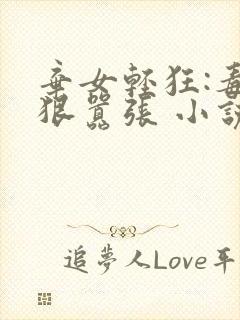 棄女輕狂:毒
狠囂張 小說
追夢人Love平